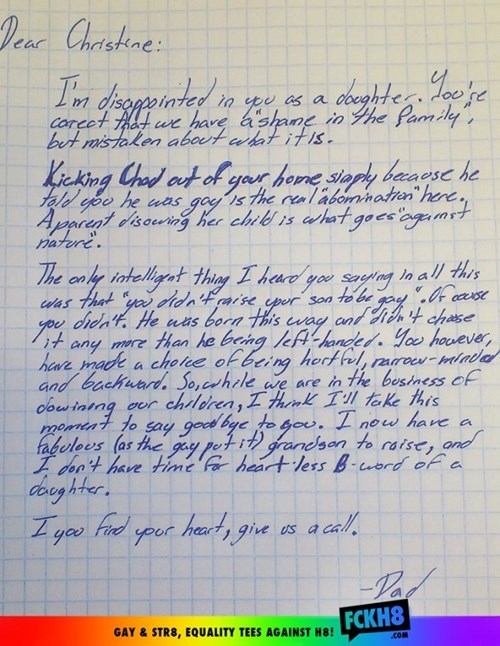 Dear Christine:
I'm disappointed in you as a daughter. You're
correct that we have a "shame in the family",
but mistaken about what it is.
Kicking Chad out of your home simply because he
told you he was gay is the real "abomination" here.
A parent disowing her child is what goes "against
nature".
The only intelligent thing I heard you saying in all this
was that "you didn't raise your son to be gay". Of course
you didn't. He was born this way and didn't choose
it any more than he being left-handed. You however,
have made a choice of being hurtful, narrow-minded
and backward. So, while we are in the business of
downing our children, I think I'll take this
moment to say goodbye to you. I now have a
fabulous (as the gay put it) grandson to raise, and
I don't have time for heart-less B-word of a
daughter.
I you find your heart, give us a call.
-Dad
GAY & STR8, EQUALITY TEES AGAINST H8! FCKH8
.COM